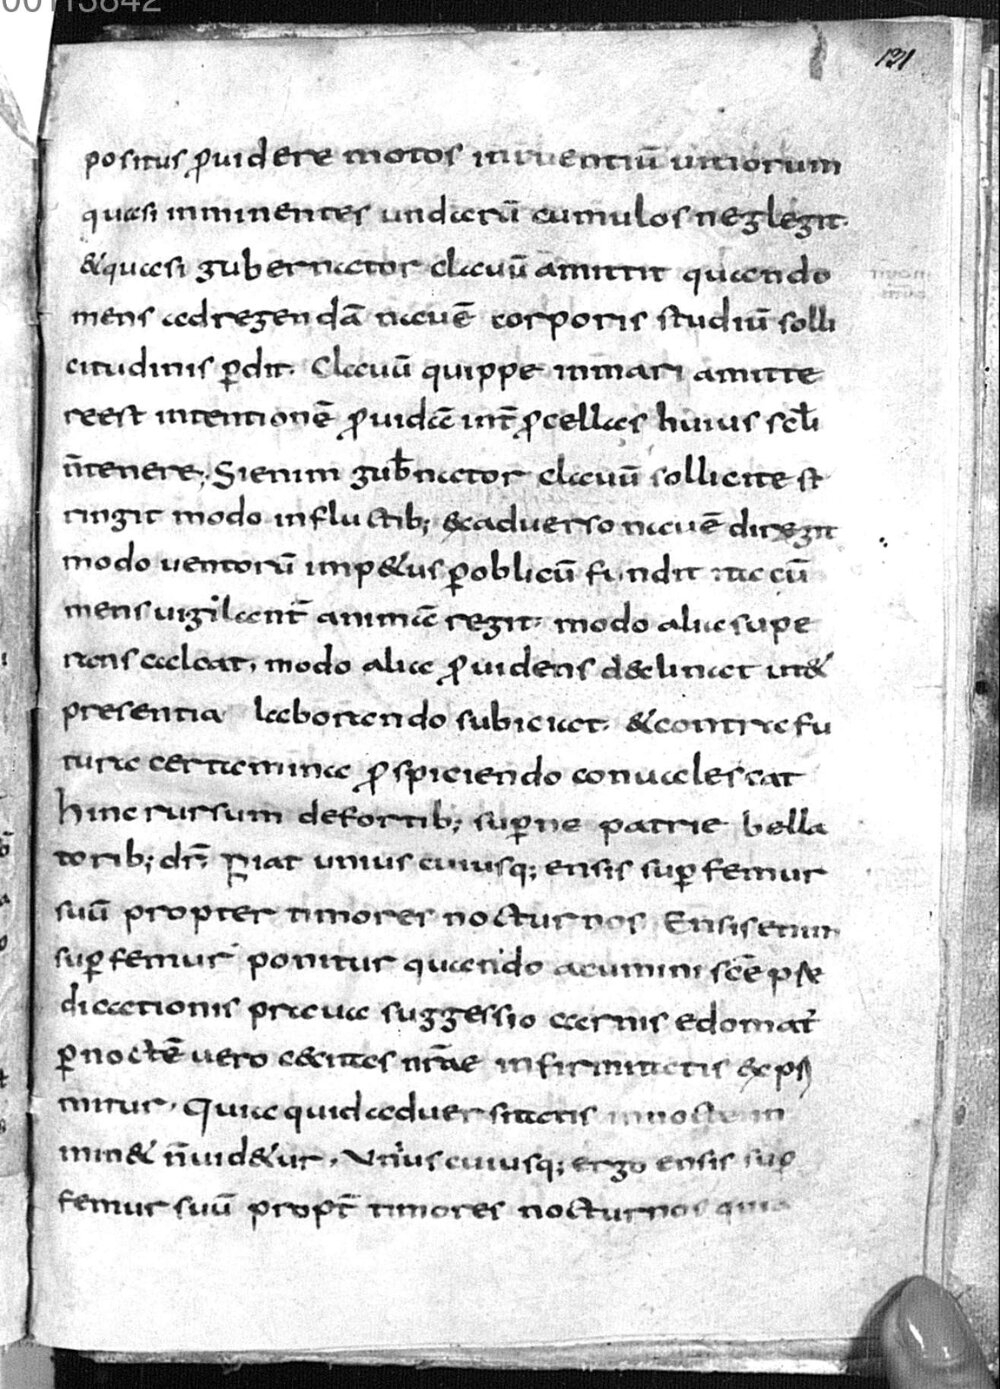 00113842
131
positus ꝓuidere motos inruentiū uitiorum
quasi inminentes undarū cumulos neglegit.
&quasi gubernator clauū amittit quando
mens adregendā nauē corporis studiū solli
citudinis ꝑdit. Clauū quippe inmari amitte
reest intentionē ꝓuidā int̄ ꝓcellas huius scl̄i
n̄tenere; Sienim gub̄nator clauū sollicite st
ringit modo influctib; &aduerso nauē diregit
modo uentorū imp&us ꝑoblicū findit ita cū
mensuigilant̄ animā regit. modo alia supe
rans calcat, modo alia ꝓuidens declinat ut&
presentia laborando subiciat. &contra fu
tura certamina ꝓspiciendo conualescat
hinc rursum defortib; suꝑne patrie bella
torib; dr̄. Fiat unius cuiusq; ensis suꝑ femur
suū propter timores nocturnos Ensisenim
suꝑ femur ponitur quando acumini scē pse
dicationis praua suggessio carnis edomat̄
ꝑnoctē uero cecitas nr̄ae infirmitatis exp̄
mitur. Quia quid aduersitatis innocte in
min& n̄uid&ur. Unius cuiusq; ergo ensis sup
femur suū propt̄ timores nocturnos quia